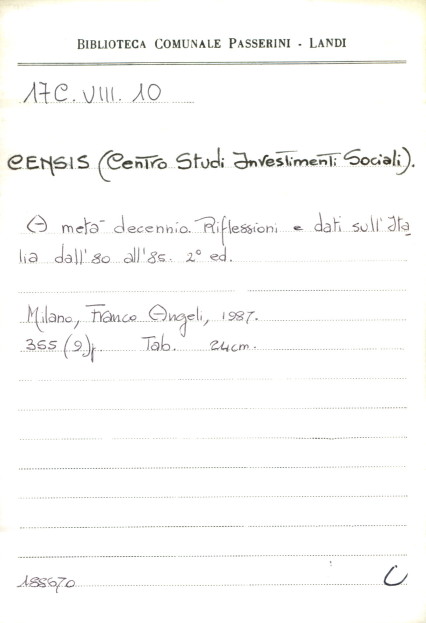 BIBLIOTECA COMUNALE PASSERINI - LANDI
17C. VIII. 10
CENSIS (Centro Studi Investimenti Sociali).
A metà decennio. Riflessioni e dati sull'Ita
lia dall'80 all'85. 2° ed.
Milano, Franco Angeli, 1987.
355 (2)p. Tab. 24cm.
188670 C